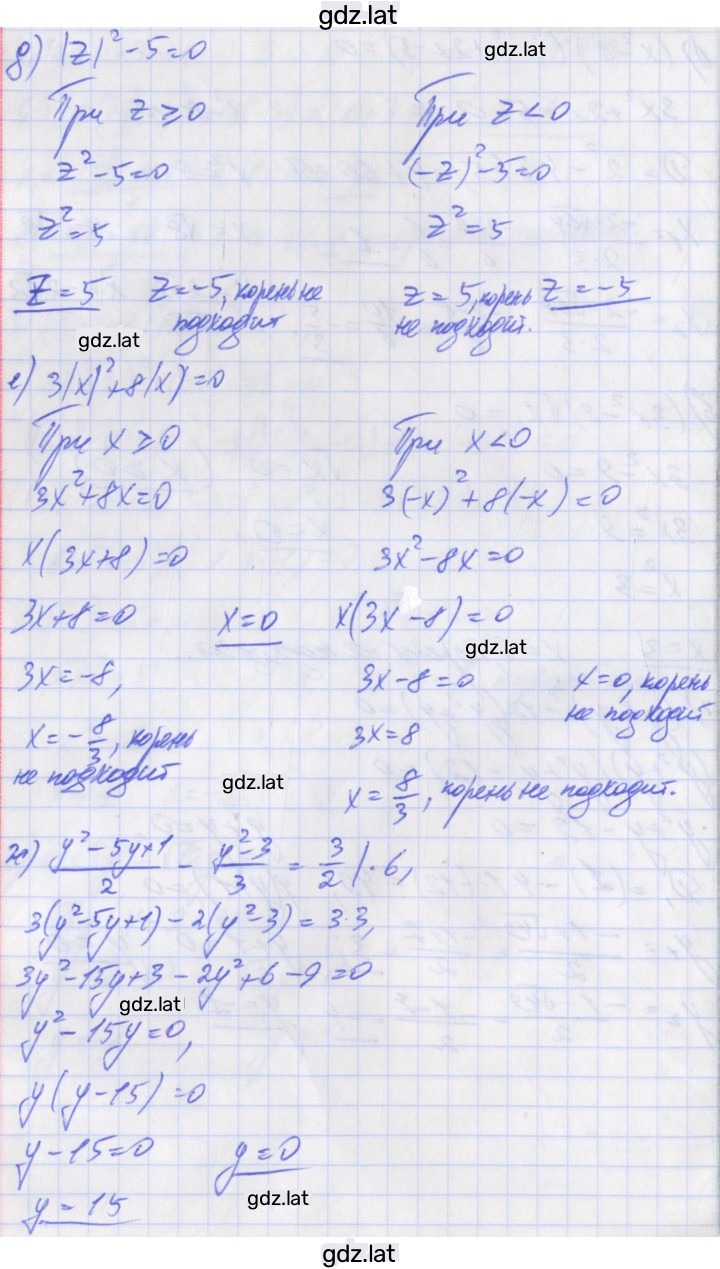 gdz.lat
д) |z|² - 5 = 0
gdz.lat
При z ≥ 0 При z < 0
z² - 5 = 0 (-z)² - 5 = 0
z² = 5 z² = 5
z = 5 z = -5, корень не подходит z = 5, корень не подходит. z = -5
gdz.lat
е) 3|x|² + 8|x| = 0
При x ≥ 0 При x < 0
3x² + 8x = 0 3(-x)² + 8(-x) = 0
x(3x + 8) = 0 3x² - 8x = 0
3x + 8 = 0 x = 0 x(3x - 8) = 0
gdz.lat
3x = -8, 3x - 8 = 0 x = 0, корень не подходит
x = -8/3, корень не подходит 3x = 8
gdz.lat
x = 8/3, корень не подходит.
ж) (y² - 5y + 1)/2 - (y² - 3)/3 = 3/2 | · 6,
3(y² - 5y + 1) - 2(y² - 3) = 3 · 3,
3y² - 15y + 3 - 2y² + 6 - 9 = 0
gdz.lat
y² - 15y = 0,
y(y - 15) = 0
y - 15 = 0 y = 0
gdz.lat
y = 15
gdz.lat